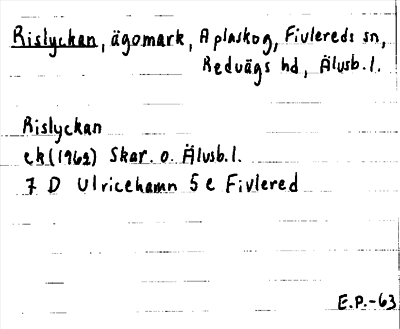 Rislyckan, ägomark, Aplaskog, Fivlereds sn,
Redvägs hd, Älvsb. l.
Rislyckan
ek (1962) Skar. o. Älvsb. l.
7 D Ulricehamn 5 e Fivlered
E.P.-63